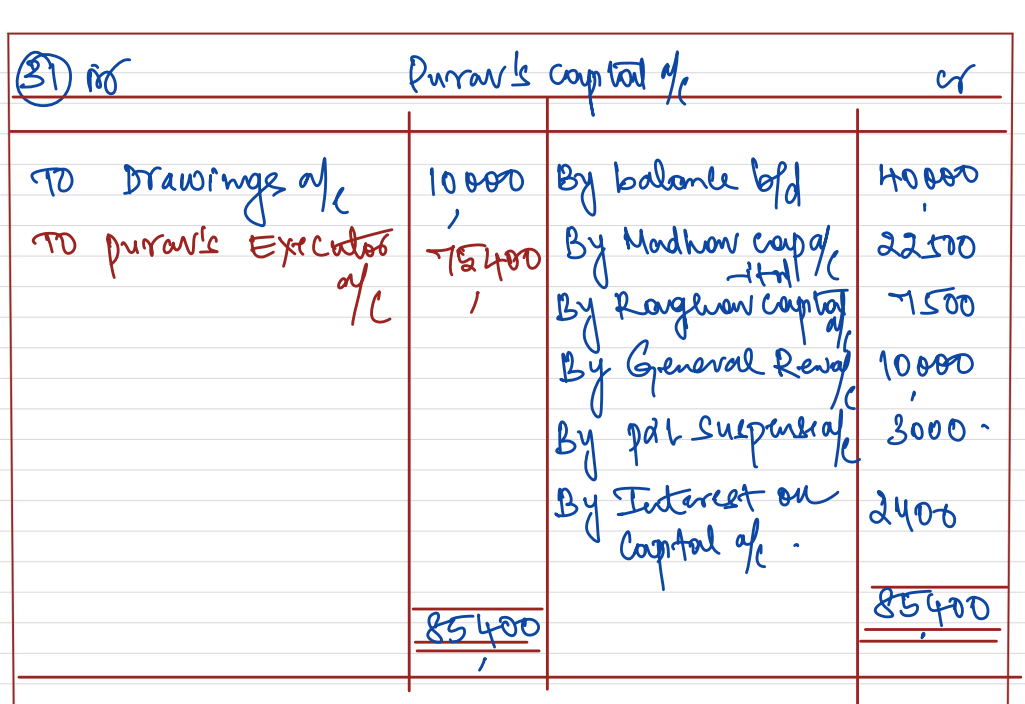 31 Dr Purav's capital a/c cr
To Drawings a/c 10000 By balance b/d 40000
To purav's Executor 75400 By Madhav cap a/c 22500
a/c ital
By Raghav capital 7500
a/c
By General Reser 10000
a/c
By p&L suspense a/c 3000
By Interest on 2400
capital a/c
85400 85400